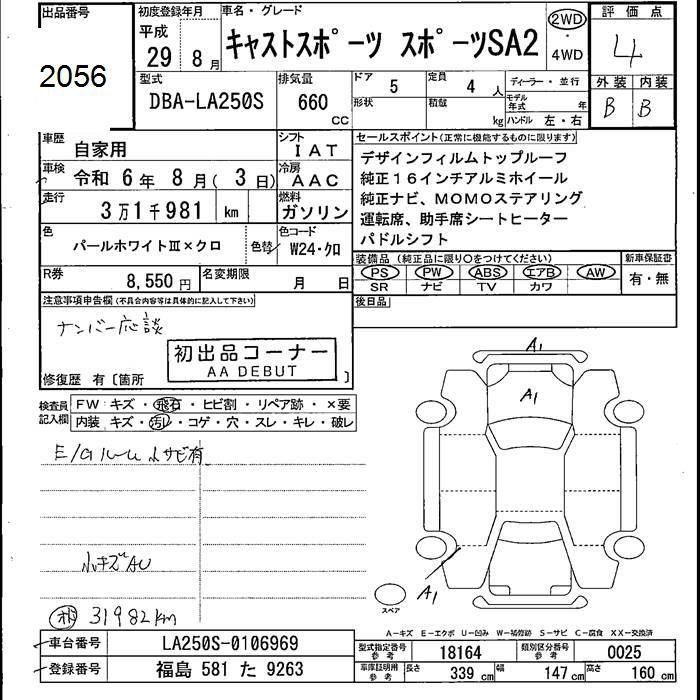 出品番号
2056
初度登録年月
平成
29 8月
車名・グレード
キャストスポーツ スポーツSA2
2WD
・
4WD
評価点
4
外装 内装
B B
型式
DBA-LA250S
排気量
660
CC
ドア
5
定員
4人
形状
積載
kg
ディーラー・並行
モデル年式 年
ハンドル 左・右
車歴
自家用
シフト
IAT
車検
令和 6年 8月( 3日)
冷房
AAC
走行
3万1千981 km
燃料
ガソリン
色
パールホワイトⅢ×クロ
色替
色コード
W24・クロ
R券
8,550円
名変期限
月 日
セールスポイント(正常に機能するものに限ります)
デザインフィルムトップルーフ
純正16インチアルミホイール
純正ナビ、MOMOステアリング
運転席、助手席シートヒーター
パドルシフト
装備品(純正品に限り○をつけてください)
PS PW ABS エアB AW
SR ナビ TV カワ
新車保証書
有・無
後日品
注意事項申告欄(不具合内容等は具体的に記入して下さい)
ナンバー応談
初出品コーナー
AA DEBUT
修復歴 有〔箇所 〕
検査員
記入欄
FW キズ・飛石・ヒビ割・リペア跡・×要
内装 キズ・汚し・コゲ・穴・スレ・キレ・破レ
E/Gルーム小サビ有
小キズAU
31982km
A1
A1
A1
スペア
A-キズ E-エクボ U-凹み W-補修跡 S-サビ C-腐食 XX-交換済
車台番号
LA250S-0106969
登録番号
福島 581 た 9263
型式指定番号
参考
18164
類別区分番号
参考
0025
車庫証明用
参考
長さ 339 cm
幅 147 cm
高さ 160 cm